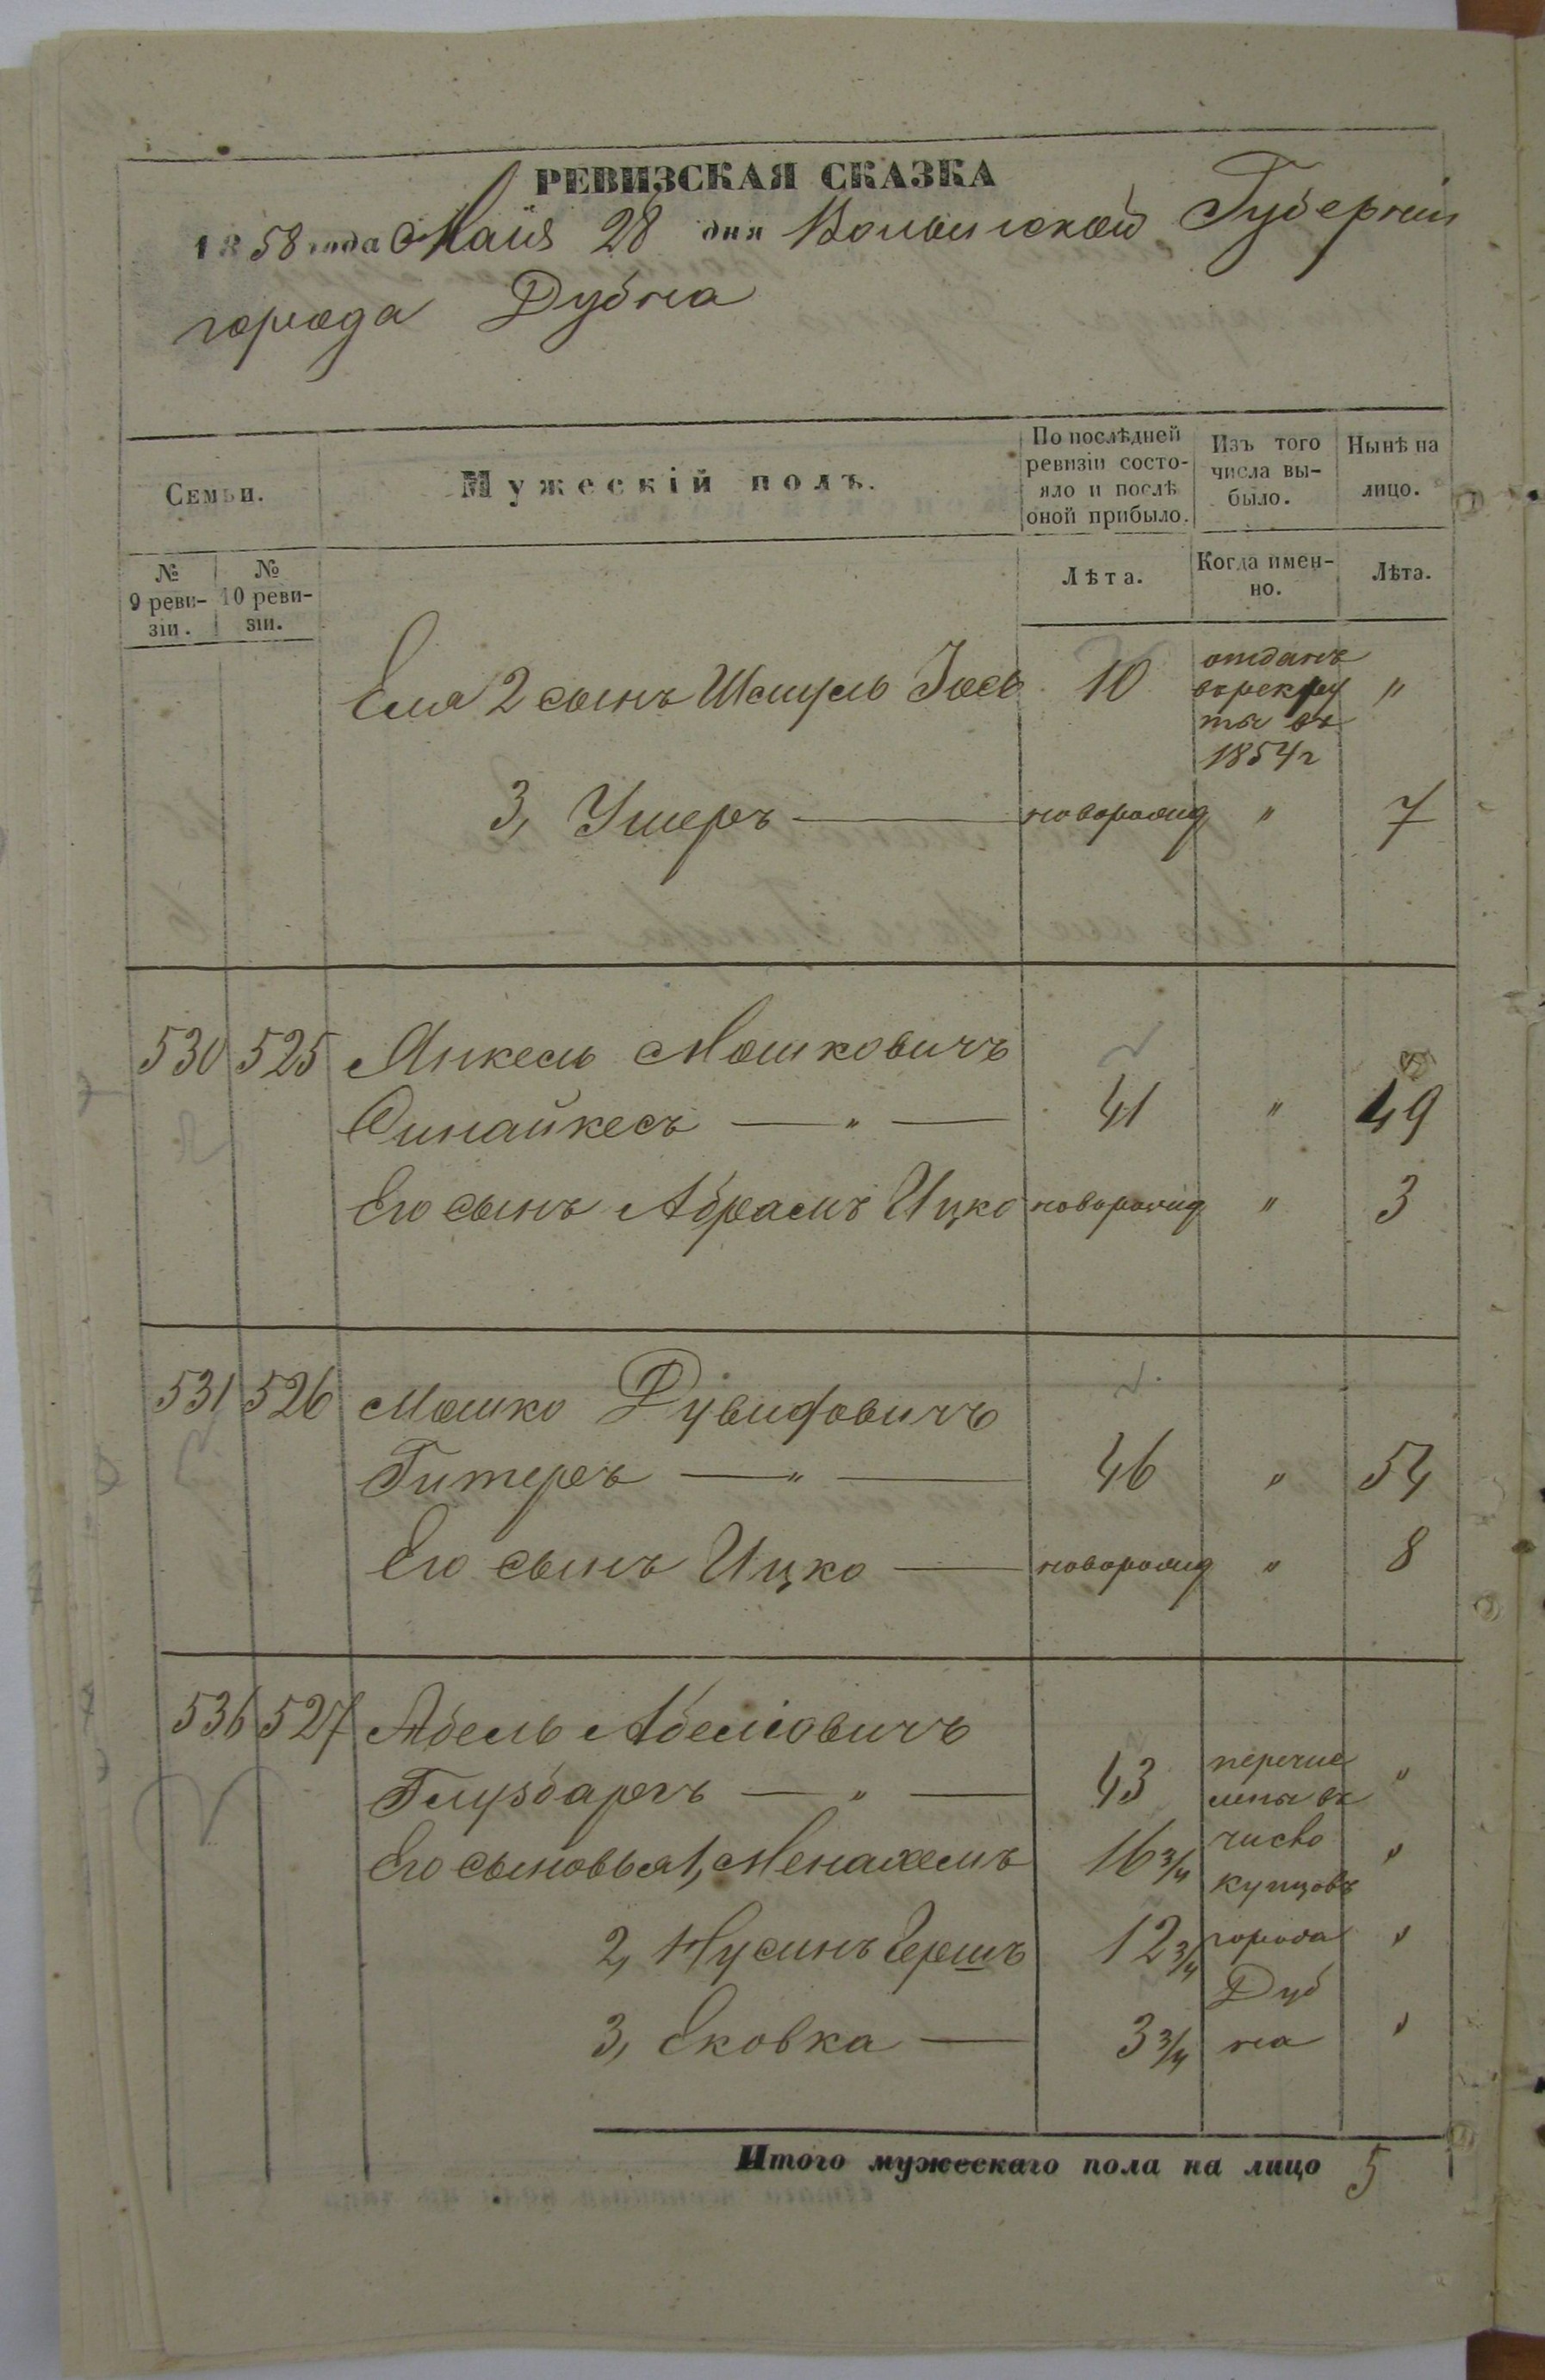 РЕВИЗСКАЯ СКАЗКА
1858 года Маія 28 дня Волынской Губерніи
города Дубна
Семьи.
Мужескій полъ.
По послѣдней ревизіи состо-
яло и послѣ
оной прибыло.
Изъ того
числа вы-
было.
Нынѣ на
лицо.
№
9 реви-
зіи.
№
10 реви-
зіи.
Лѣта.
Когда имен-
но.
Лѣта.
Его 2 сынъ Шмуль Іось 10 отданъ "
в рекру
ты въ
1854 г
3, Ушеръ — новорожд " 7
530 525 Янкель Мошковичъ
Синайкесъ — " — 41 " 49
Его сынъ Абрамъ Ицко новорожд " 3
531 526 Мошко Дувидовичъ
Гитеръ — " — 46 " 54
Его сынъ Ицко — новорожд " 8
536 527 Абель Абеліовичъ
Глузбаргъ — " — 43 перечис "
лены въ
Его сыновья 1, Менахемъ 16 3/4 число "
купцовъ
2, Нусинъ Гершъ 12 3/4 города "
Дуб
3, Ековка — 3 3/4 на "
Итого мужескаго пола на лицо 5